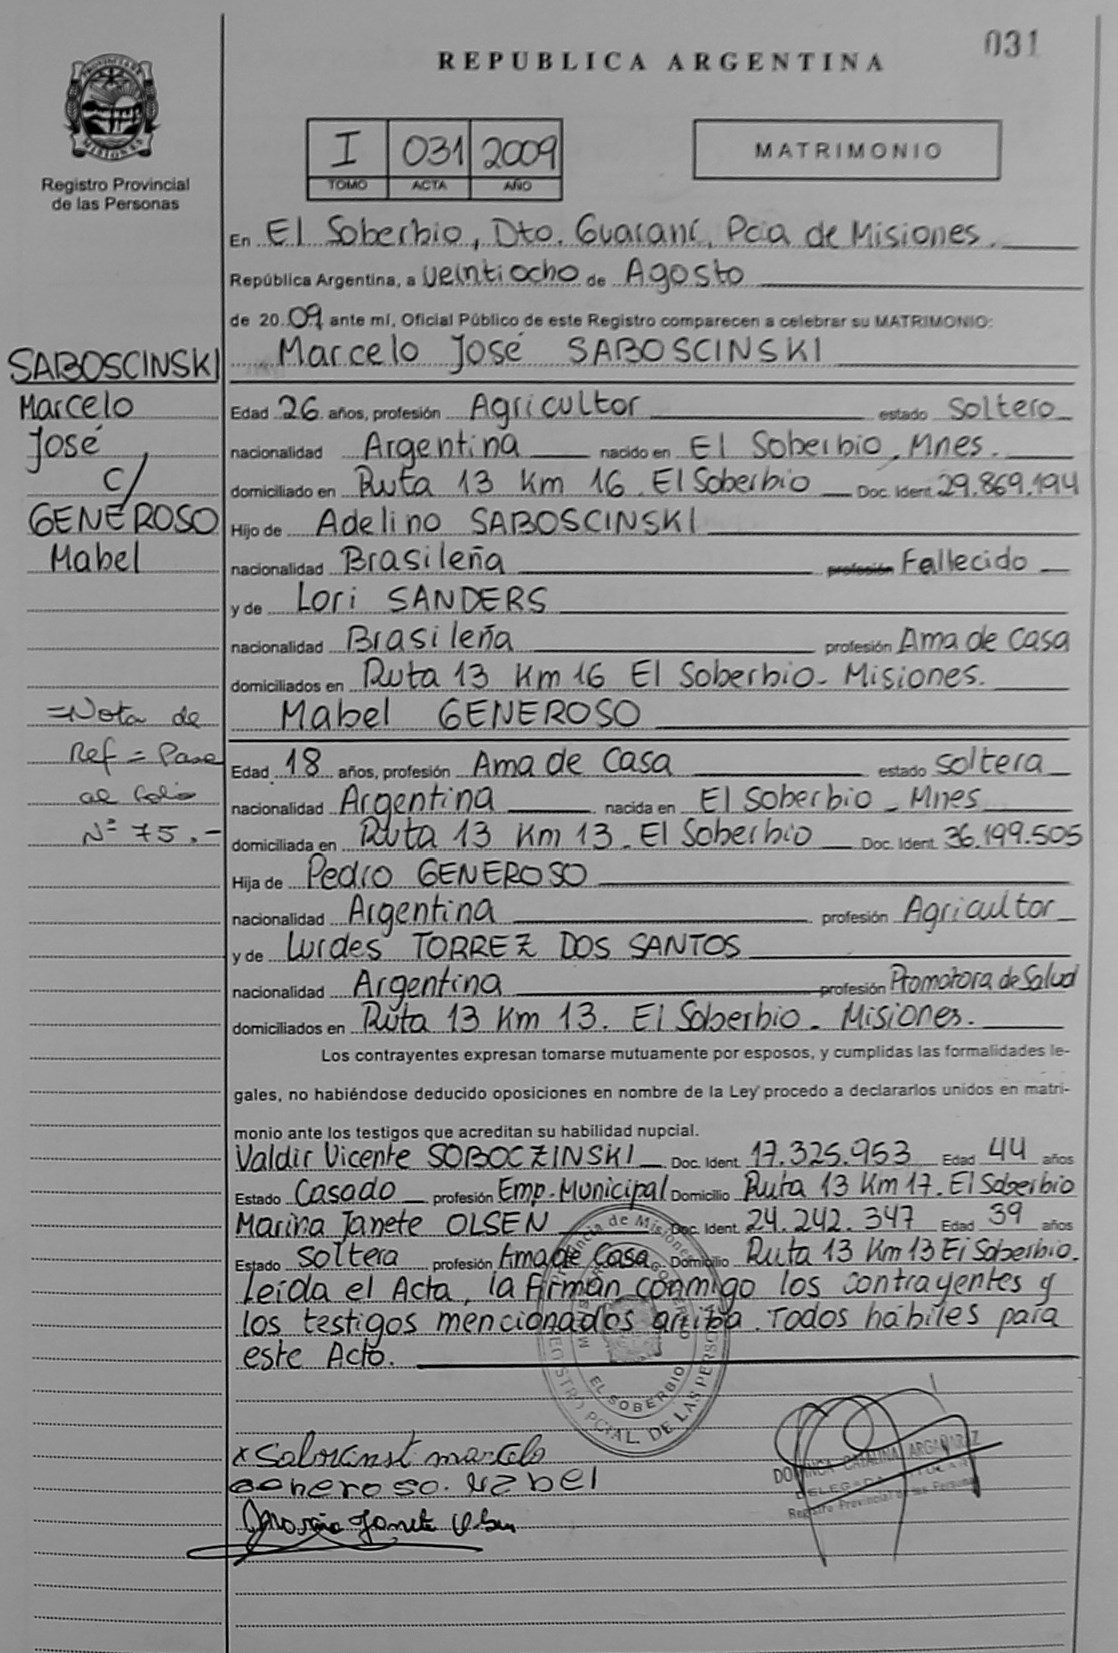 031
REPUBLICA ARGENTINA
PROVINCIA DE MISIONES
Registro Provincial
de las Personas
I 031 2009
TOMO ACTA AÑO
MATRIMONIO
En El Soberbio, Dto. Guaraní, Pcia de Misiones.
República Argentina, a veintiocho de Agosto
de 20 09 ante mí, Oficial Público de este Registro comparecen a celebrar su MATRIMONIO:
Marcelo José SABOSCINSKI
Edad 26 años, profesión Agricultor estado Soltero
nacionalidad Argentina nacido en El Soberbio, Mnes.
domiciliado en Ruta 13 Km 16. El Soberbio Doc. Ident. 29.869.194
Hijo de Adelino SABOSCINSKI
nacionalidad Brasileña profesión Fallecido
y de Lori SANDERS
nacionalidad Brasileña profesión Ama de Casa
domiciliados en Ruta 13 Km 16 El Soberbio - Misiones.
Mabel GENEROSO
Edad 18 años, profesión Ama de Casa estado Soltera
nacionalidad Argentina nacida en El Soberbio - Mnes
domiciliada en Ruta 13 Km 13 - El Soberbio Doc. Ident. 36.199.505
Hija de Pedro GENEROSO
nacionalidad Argentina profesión Agricultor
y de Lurdes TORREZ DOS SANTOS
nacionalidad Argentina profesión Promotora de Salud
domiciliados en Ruta 13 Km 13. El Soberbio - Misiones.
Los contrayentes expresan tomarse mutuamente por esposos, y cumplidas las formalidades le-
gales, no habiéndose deducido oposiciones en nombre de la Ley procedo a declararlos unidos en matri-
monio ante los testigos que acreditan su habilidad nupcial.
Valdir Vicente SOBOCZINSKI Doc. Ident. 17.325.953 Edad 44 años
Estado Casado profesión Emp. Municipal Domicilio Ruta 13 Km 17. El Soberbio
Marina Janete OLSEN Doc. Ident. 24.242.347 Edad 39 años
Estado Soltera profesión Ama de Casa Domicilio Ruta 13 Km 13 El Soberbio.
leída el Acta, la firman conmigo los contrayentes y
los testigos mencionados arriba. Todos hábiles para
este Acto.
SABOSCINSKI
Marcelo
José
C/
GENEROSO
Mabel
=Nota de
Ref = Pase
al folio
Nº 75.-
Provincia de Misiones
EL SOBERBIO
REGISTRO PCIAL. DE LAS PERSONAS
x marcelo
Generoso. Mabel
Janete Olsen
CATALINA ARGAÑARAZ
DELEGADA TITULAR
Registro Provincial de las Personas